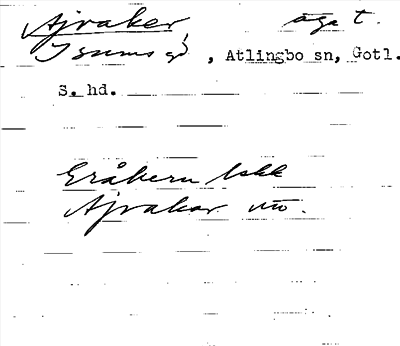 Ajvaker, äga t.
Isums gd, Atlingbo sn, Gotl.
S. hd.
Eråkern lskk
Ajvakar uo.